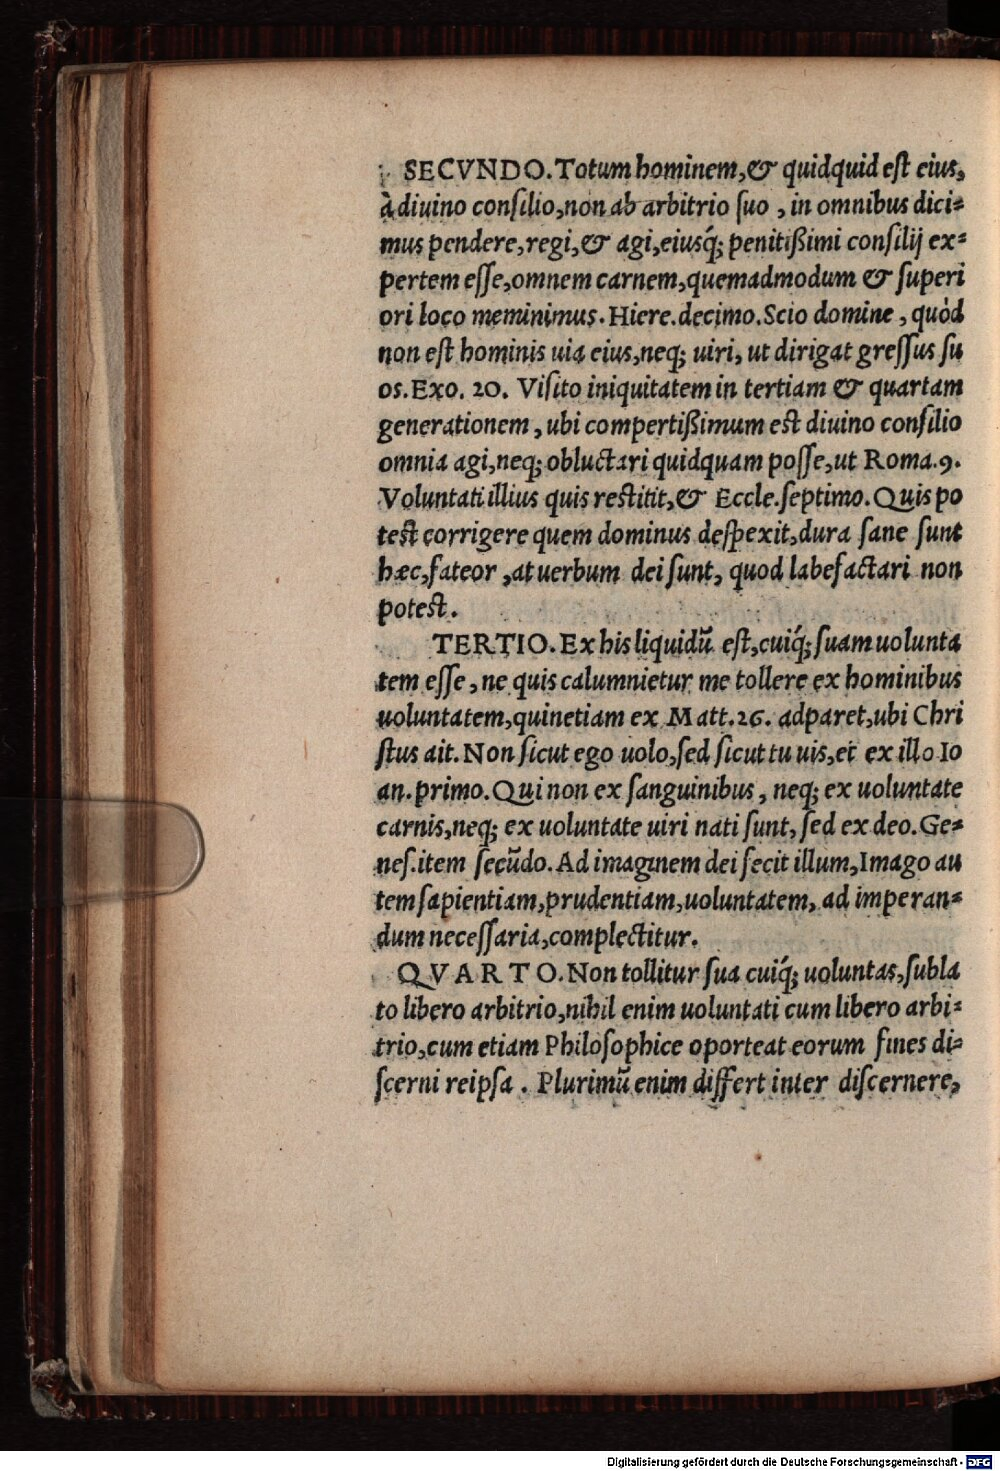 SECVNDO. Totum hominem, & quidquid eſt eius,
à diuino conſilio, non ab arbitrio ſuo , in omnibus dici⸗
mus pendere, regi, & agi, eiusq́; penitißimi conſilij ex⸗
pertem eſſe, omnem carnem, quemadmodum & ſuperi
ori loco meminimus. Hiere. decimo. Scio domine , quòd
non eſt hominis uia eius, neq; uiri, ut dirigat greſſus ſu
os. Exo. 20. Viſito iniquitatem in tertiam & quartam
generationem , ubi compertißimum est diuino conſilio
omnia agi, neq; obluctari quidquam poſſe, ut Roma. 9.
Voluntati illius quis restitit, & Eccle. ſeptimo. Quis po
test corrigere quem dominus deſpexit, dura ſane ſunt
hæc, fateor , at uerbum dei ſunt, quod labefactari non
potest.
TERTIO. Ex his liquidũ eſt, cuiq́; ſuam uolunta
tem eſſe, ne quis calumnietur me tollere ex hominibus
uoluntatem, quinetiam ex Matt. 26. adparet, ubi Chri
ſtus ait. Non ſicut ego uolo, ſed ſicut tu uis, et ex illo Io
an. primo. Qui non ex ſanguinibus , neq; ex uoluntate
carnis, neq; ex uoluntate uiri nati ſunt, ſed ex deo. Ge⸗
neſ. item ſecũdo. Ad imaginem dei fecit illum, Imago au
tem ſapientiam, prudentiam, uoluntatem, ad imperan⸗
dum neceſſaria, complectitur.
QVARTO. Non tollitur ſua cuiq́; uoluntas, ſubla
to libero arbitrio, nihil enim uoluntati cum libero arbi⸗
trio, cum etiam Philoſophice oporteat eorum fines di⸗
ſcerni reipſa . Plurimũ enim differt inter diſcernere,
Digitalisierung gefördert durch die Deutsche Forschungsgemeinschaft - DFG